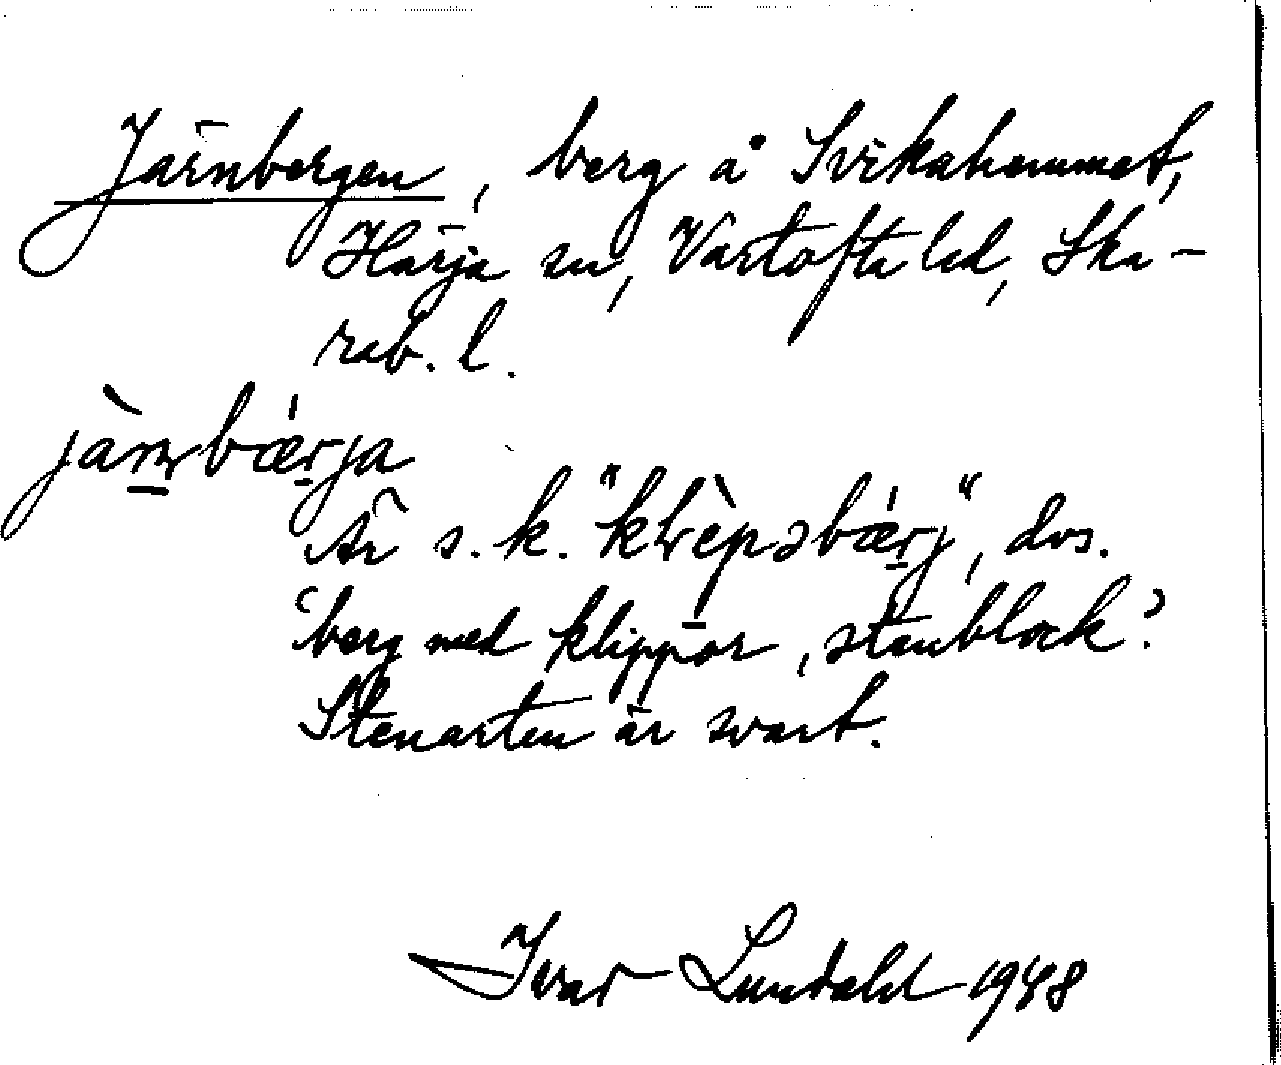 Järnbergen, berg å Svikahemmet,
Härja sn, Vartofta hd, Ska-
rab. l.
jàrn̥bæ̀rja
Är s.k. "klrèpəbærj", dvs.
'berg med klippor, stenblock'.
Stenarten är svart.
Ivar Lundahl 1948